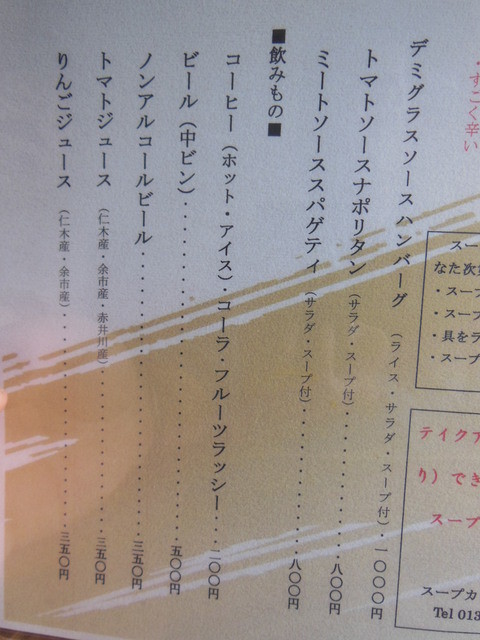 ・すごく辛い
デミグラスソースハンバーグ（ライス・サラダ・スープ付）・一〇〇〇円
トマトソースナポリタン（サラダ・スープ付）・・・・・・・・・・八〇〇円
ミートソーススパゲティ（サラダ・スープ付）・・・・・・・・・・八〇〇円
■飲みもの■
コーヒー（ホット・アイス）・コーラ・フルーツラッシー・・・二〇〇円
ビール（中ビン）・・・・・・・・・・・・・・・・・・・・五〇〇円
ノンアルコールビール・・・・・・・・・・・・・・・・・三五〇円
トマトジュース（仁木産・余市産・赤井川産）・・・・・・・・・・三五〇円
りんごジュース（仁木産・余市産）・・・・・・・・・・・・・・三五〇円
スー
なた次
・スープ
・スープ
・具をラ
・スープ
テイクア
り）でき
スープ
スープカ
Tel 013